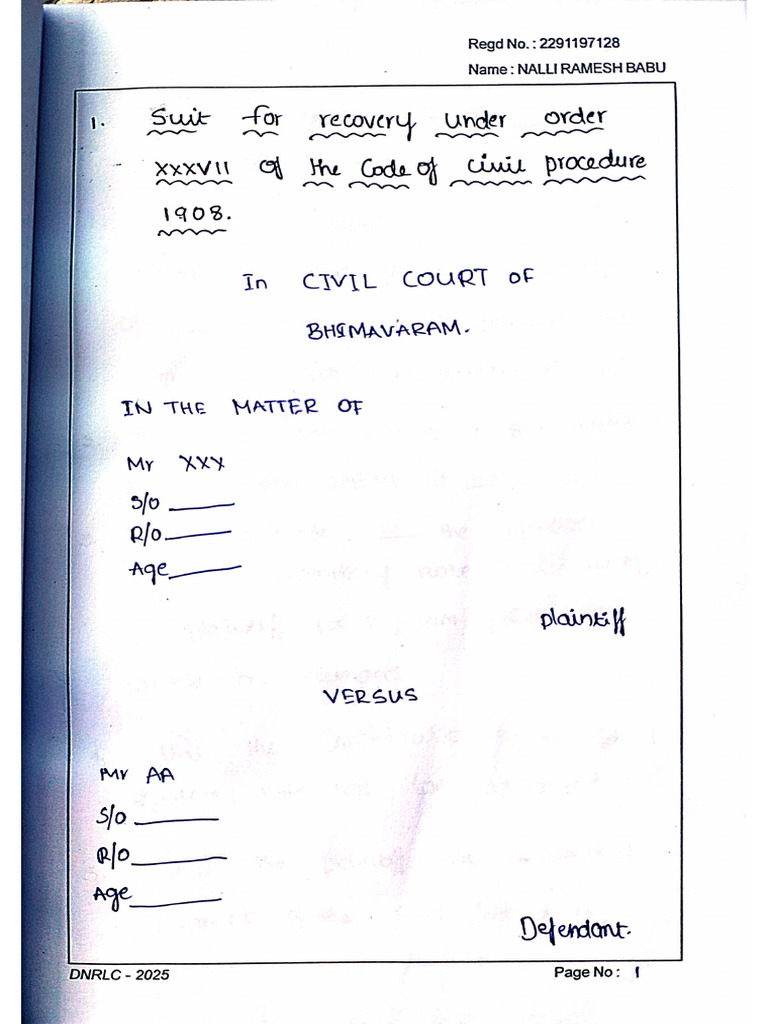 Regd No. : 2291197128
Name : NALLI RAMESH BABU
1. Suit for recovery under order
XXXVII of the Code of civil procedure
1908.
In CIVIL COURT OF
BHIMAVARAM.
IN THE MATTER OF
Mr XXX
S/O ______
R/O ______
Age ______
plaintiff
VERSUS
Mr AA
S/O ______
R/O ______
Age ______
Defendant.
DNRLC - 2025
Page No : 1